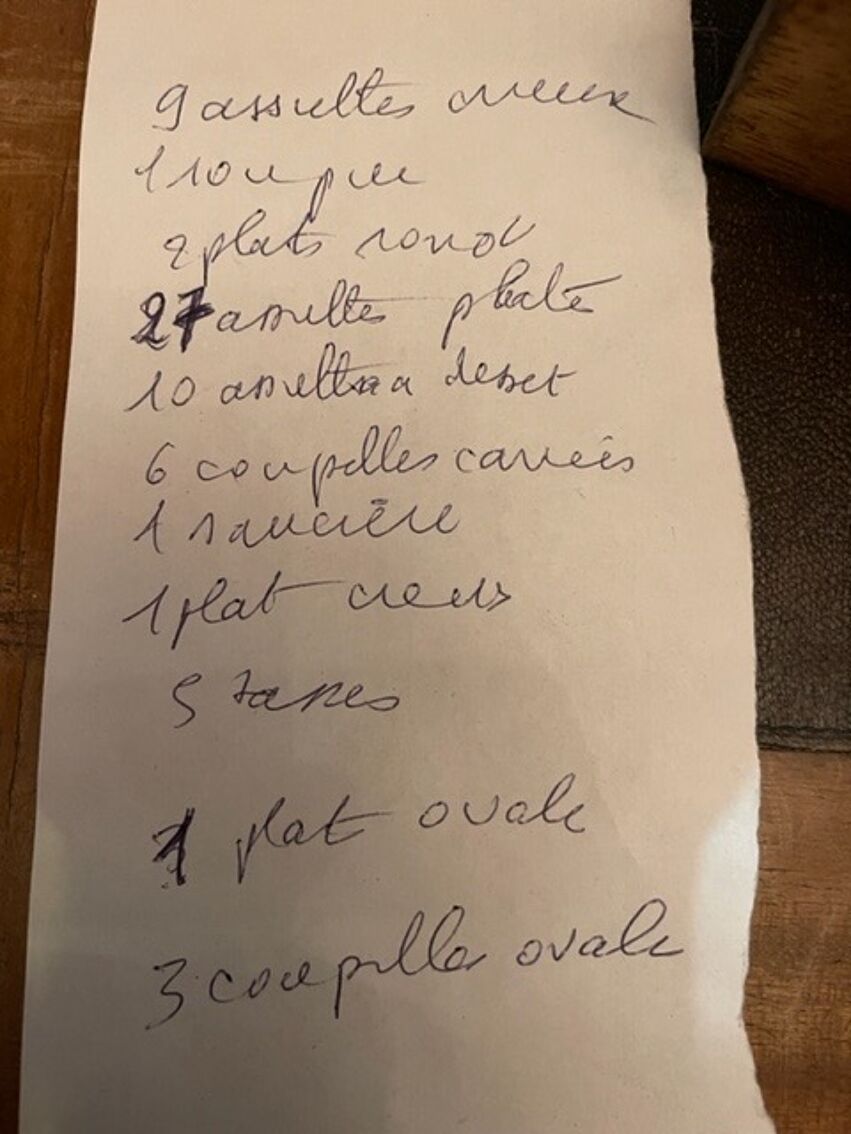 9 assiettes creux
1 soupier
2 plats rond
27 assiettes plate
10 assiettes a desset
6 coupelles carrées
1 saucière
1 plat creux
5 tasses
1 plat ovale
3 coupelles ovale